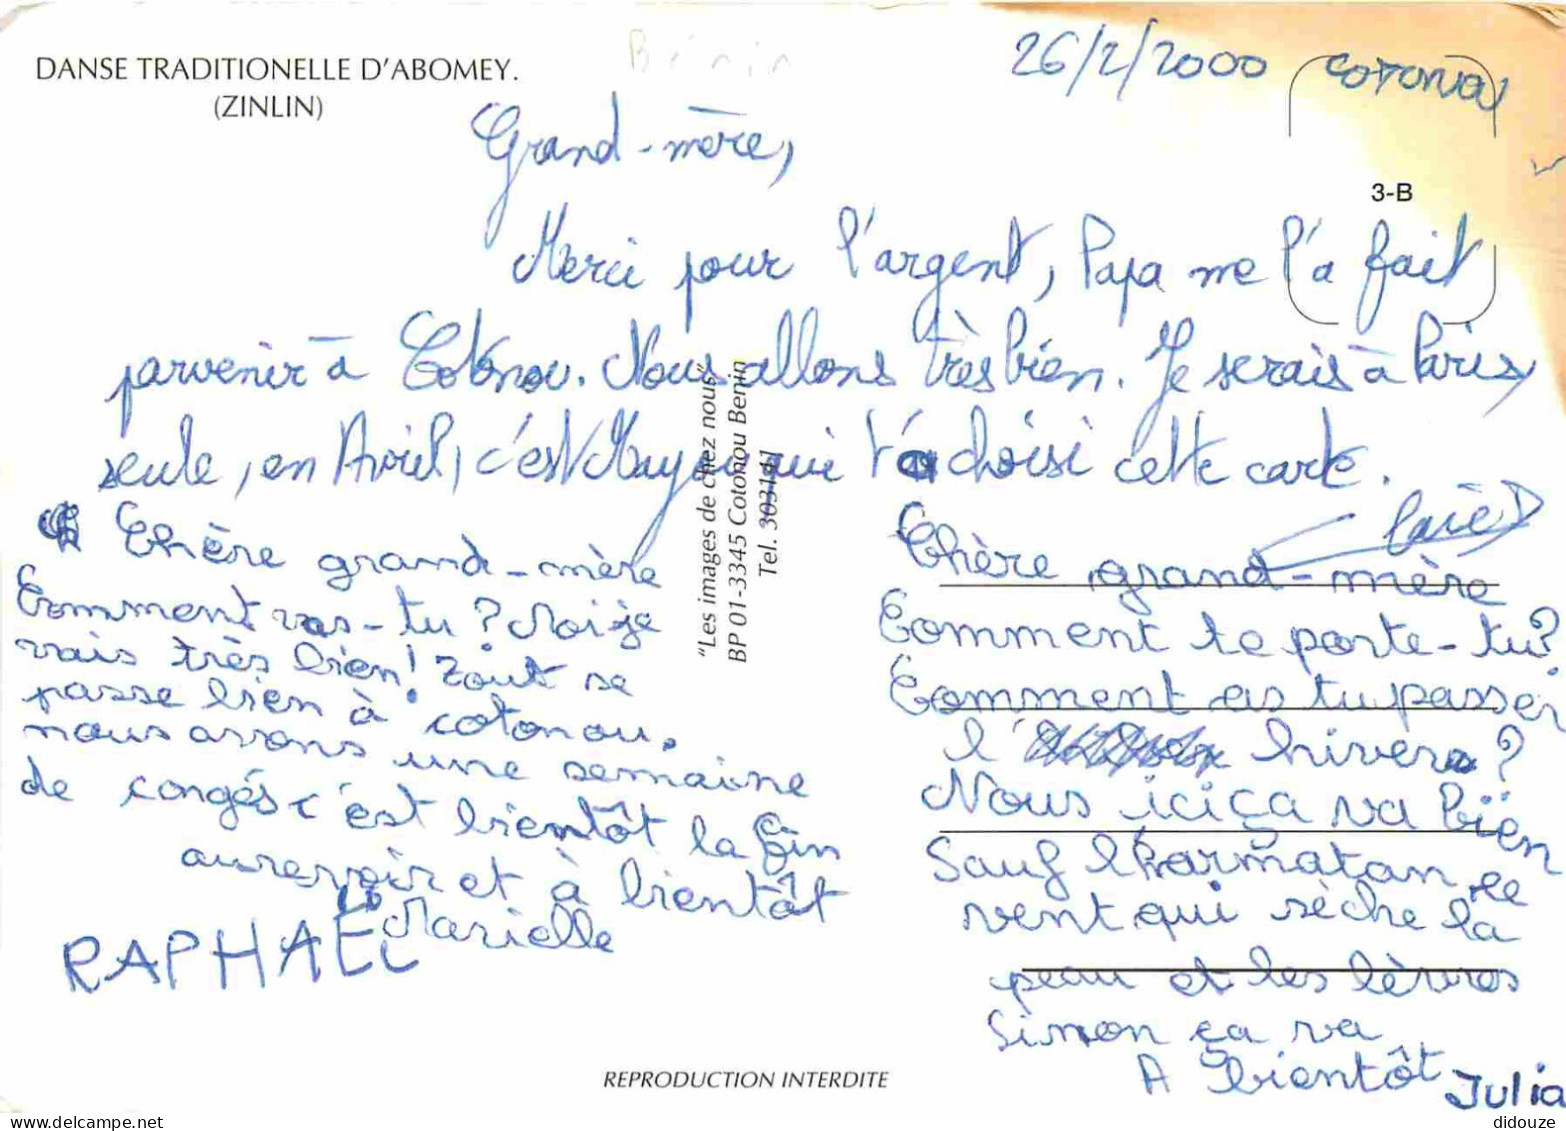 DANSE TRADITIONELLE D'ABOMEY.
(ZINLIN)
Bénin
26/2/2000 COTONOU
3-B
Grand-mère,
Merci pour l'argent, Papa me l'a fait
parvenir à Cotonou. Nous allons très bien. Je serais à Paris,
seule, en Avril, c'est qui t'a choisi cette carte.
Chère grand-mère
Comment vas-tu? Moi je
vais très bien! Tout se
passe bien à cotonou.
nous avons une semaine
de congés c'est bientôt la fin
aurevoir et à bientôt
Marielle
RAPHAËL
"Les images de chez nous"
BP 01-3345 Cotonou Benin
Tel. 303141
Chère grand-mère
Comment te porte-tu?
Comment as tu passer
l' hiver?
Nous ici ça va bien
Sauf l'harmatan, le
vent qui sèche la
peau et les lèvres
Simon ça va
A bientôt Julia
REPRODUCTION INTERDITE
didouze